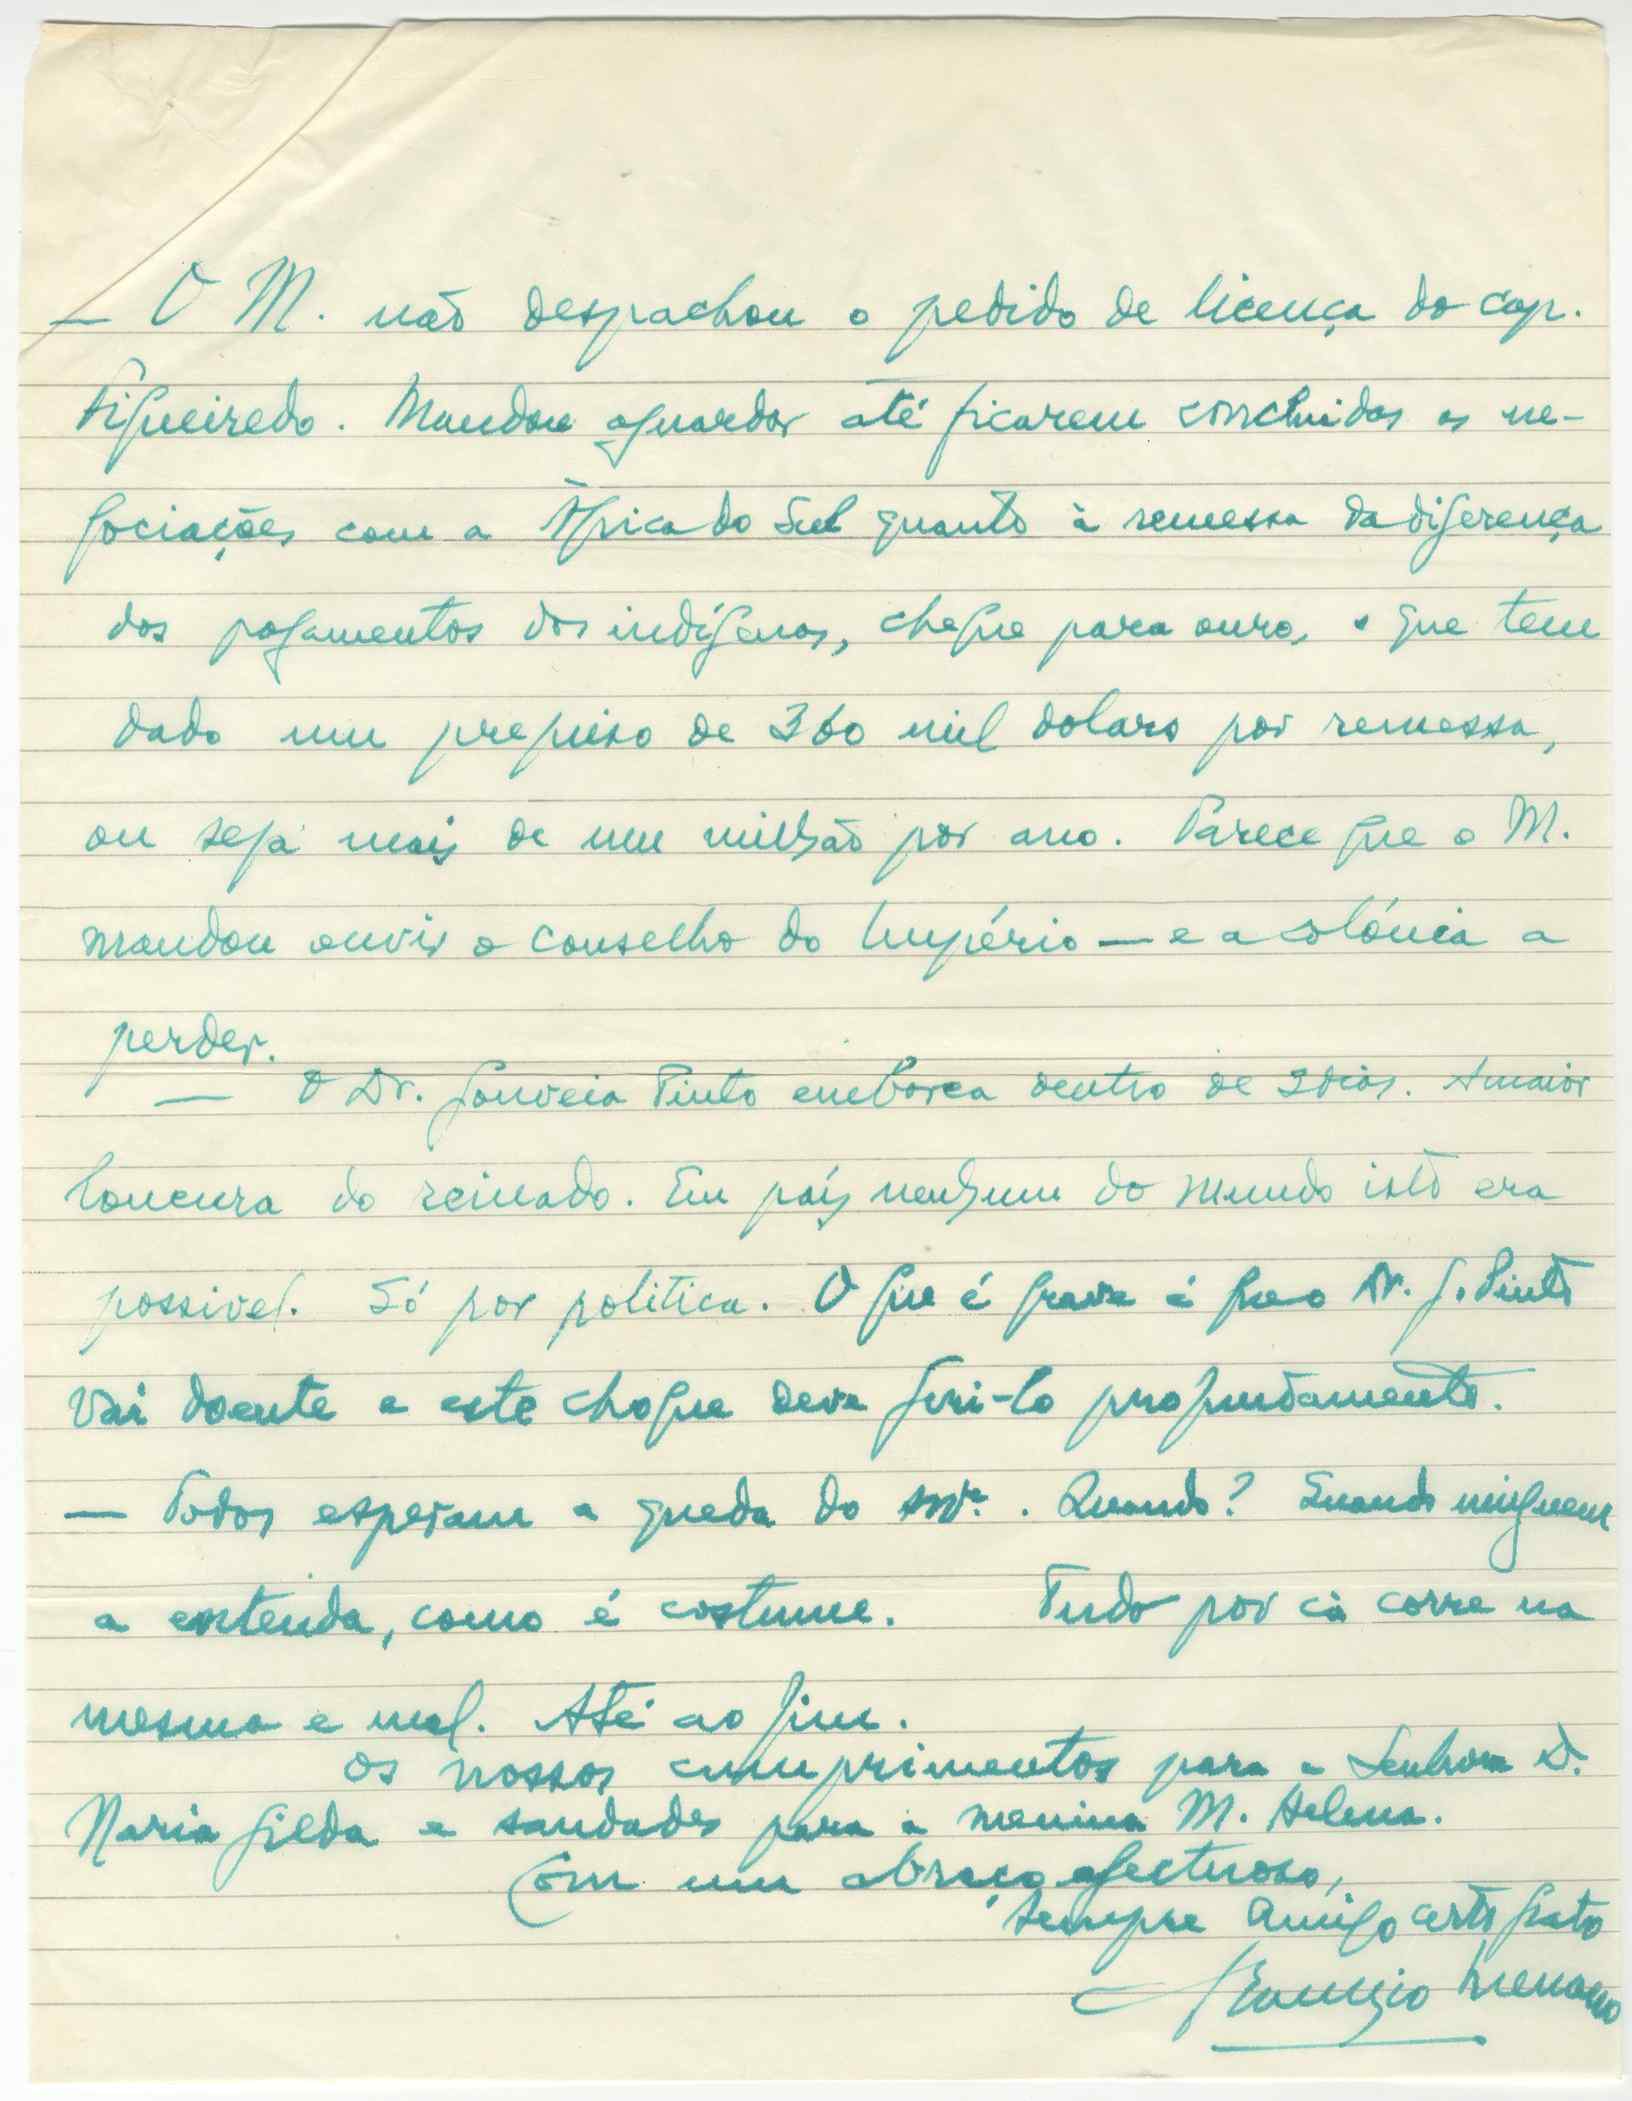 — O M. não despachou o pedido de licença do cap.
Figueiredo. Mandou aguardar até ficarem concluidas as ne-
gociações com a África do Sul quanto à remessa da diferença
dos pagamentos dos indígenas, cheque para ouro, o que tem
dado um prejuizo de 360 mil dolars por remessa,
ou seja mais de um milhão por ano. Parece que o M.
mandou ouvir o conselho do Império — e a colónia a
perder.
— O Dr. Gouveia Pinto embarca dentro de 2 dias. A maior
loucura do reinado. Em país nenhum do mundo isto era
possivel. Só por politica. O que é grave é que o Dr. G. Pinto
vai doente e este choque deve feri-lo profundamente.
— Todos esperam a queda do Quando? Quando ninguem
a entenda, como é costume. Tudo por cá corre na
mesma e mal. Até ao fim.
Os nossos cumprimentos para a Senhora D.
Maria Gilda e saudades para a menina M. Helena.
Com um abraço afectuoso,
sempre amigo certo grato